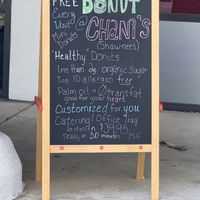 FREE DONUT
Every Visit @ CHANI'S
Mini Donuts (Shawnees)
"Healthy" Donuts
less than 2g organic sugar
Top 10 allergen free
Palm oil = 0 transfat
good for your heart
Customized for you
Catering/Office Tray
6 dozen $39.95
ready in 30 minutes M-F